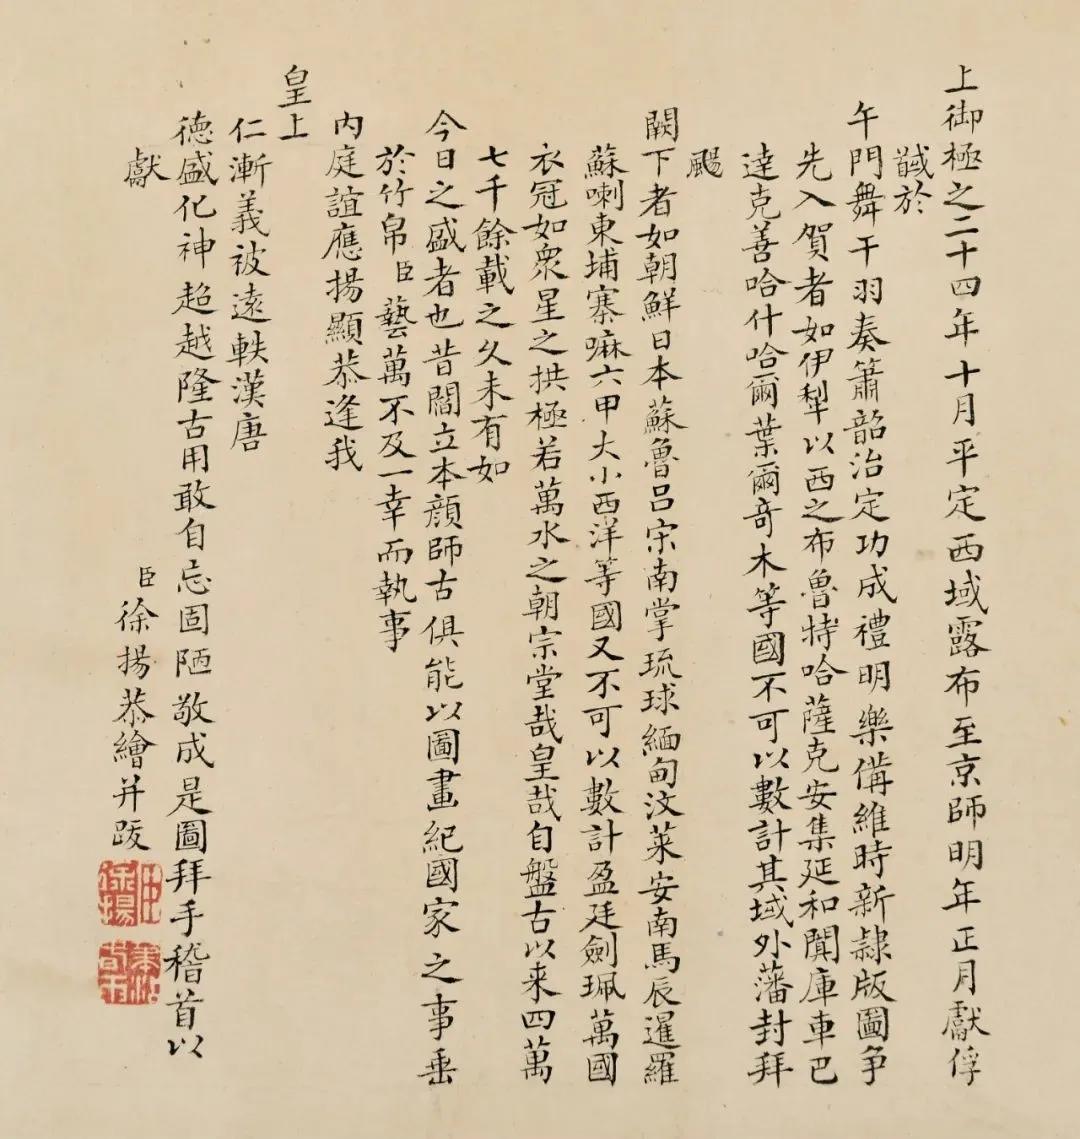 上御極之二十四年十月平定西域露布至京師明年正月獻俘
馘於
午門舞干羽奏簫韶治定功成禮明樂備維時新隷版圖爭
先入賀者如伊犁以西之布魯特哈薩克安集延和闐庫車巴
達克善哈什哈爾葉爾奇木等國不可以數計其域外藩封拜
颺
闕下者如朝鮮日本蘇魯呂宋南掌琉球緬甸汶萊安南馬辰暹羅
蘇喇東埔寨嘛六甲大小西洋等國又不可以數計盈廷劍珮萬國
衣冠如衆星之拱極若萬水之朝宗堂哉皇哉自盤古以来四萬
七千餘載之久未有如
今日之盛者也昔閻立本顔師古俱能以圖畫紀國家之事垂
於竹帛臣藝萬不及一幸而執事
内庭誼應揚顯恭逢我
皇上
仁漸義被遠軼漢唐
德盛化神超越隆古用敢自忘固陋敬成是圖拜手稽首以
獻
臣徐揚恭繪并跋
臣徐揚